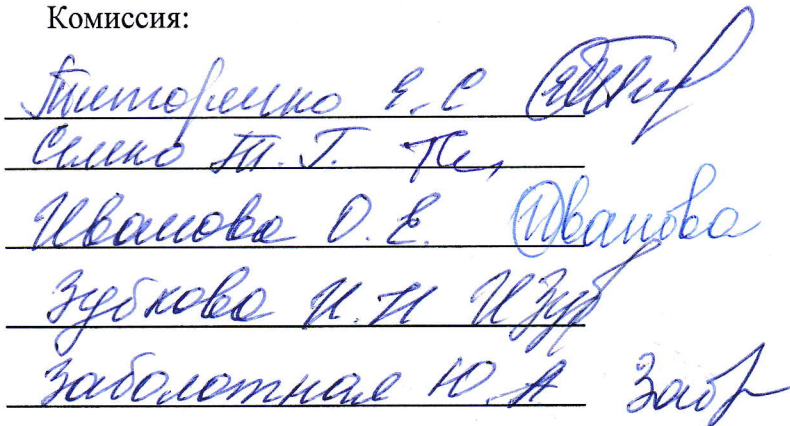 Комиссия:
Титоренко Е.С
Семко Т.Г.
Иванова О.Е. Иванова
Зубкова И.Н ИЗуб
Заболотная Ю.А Забр